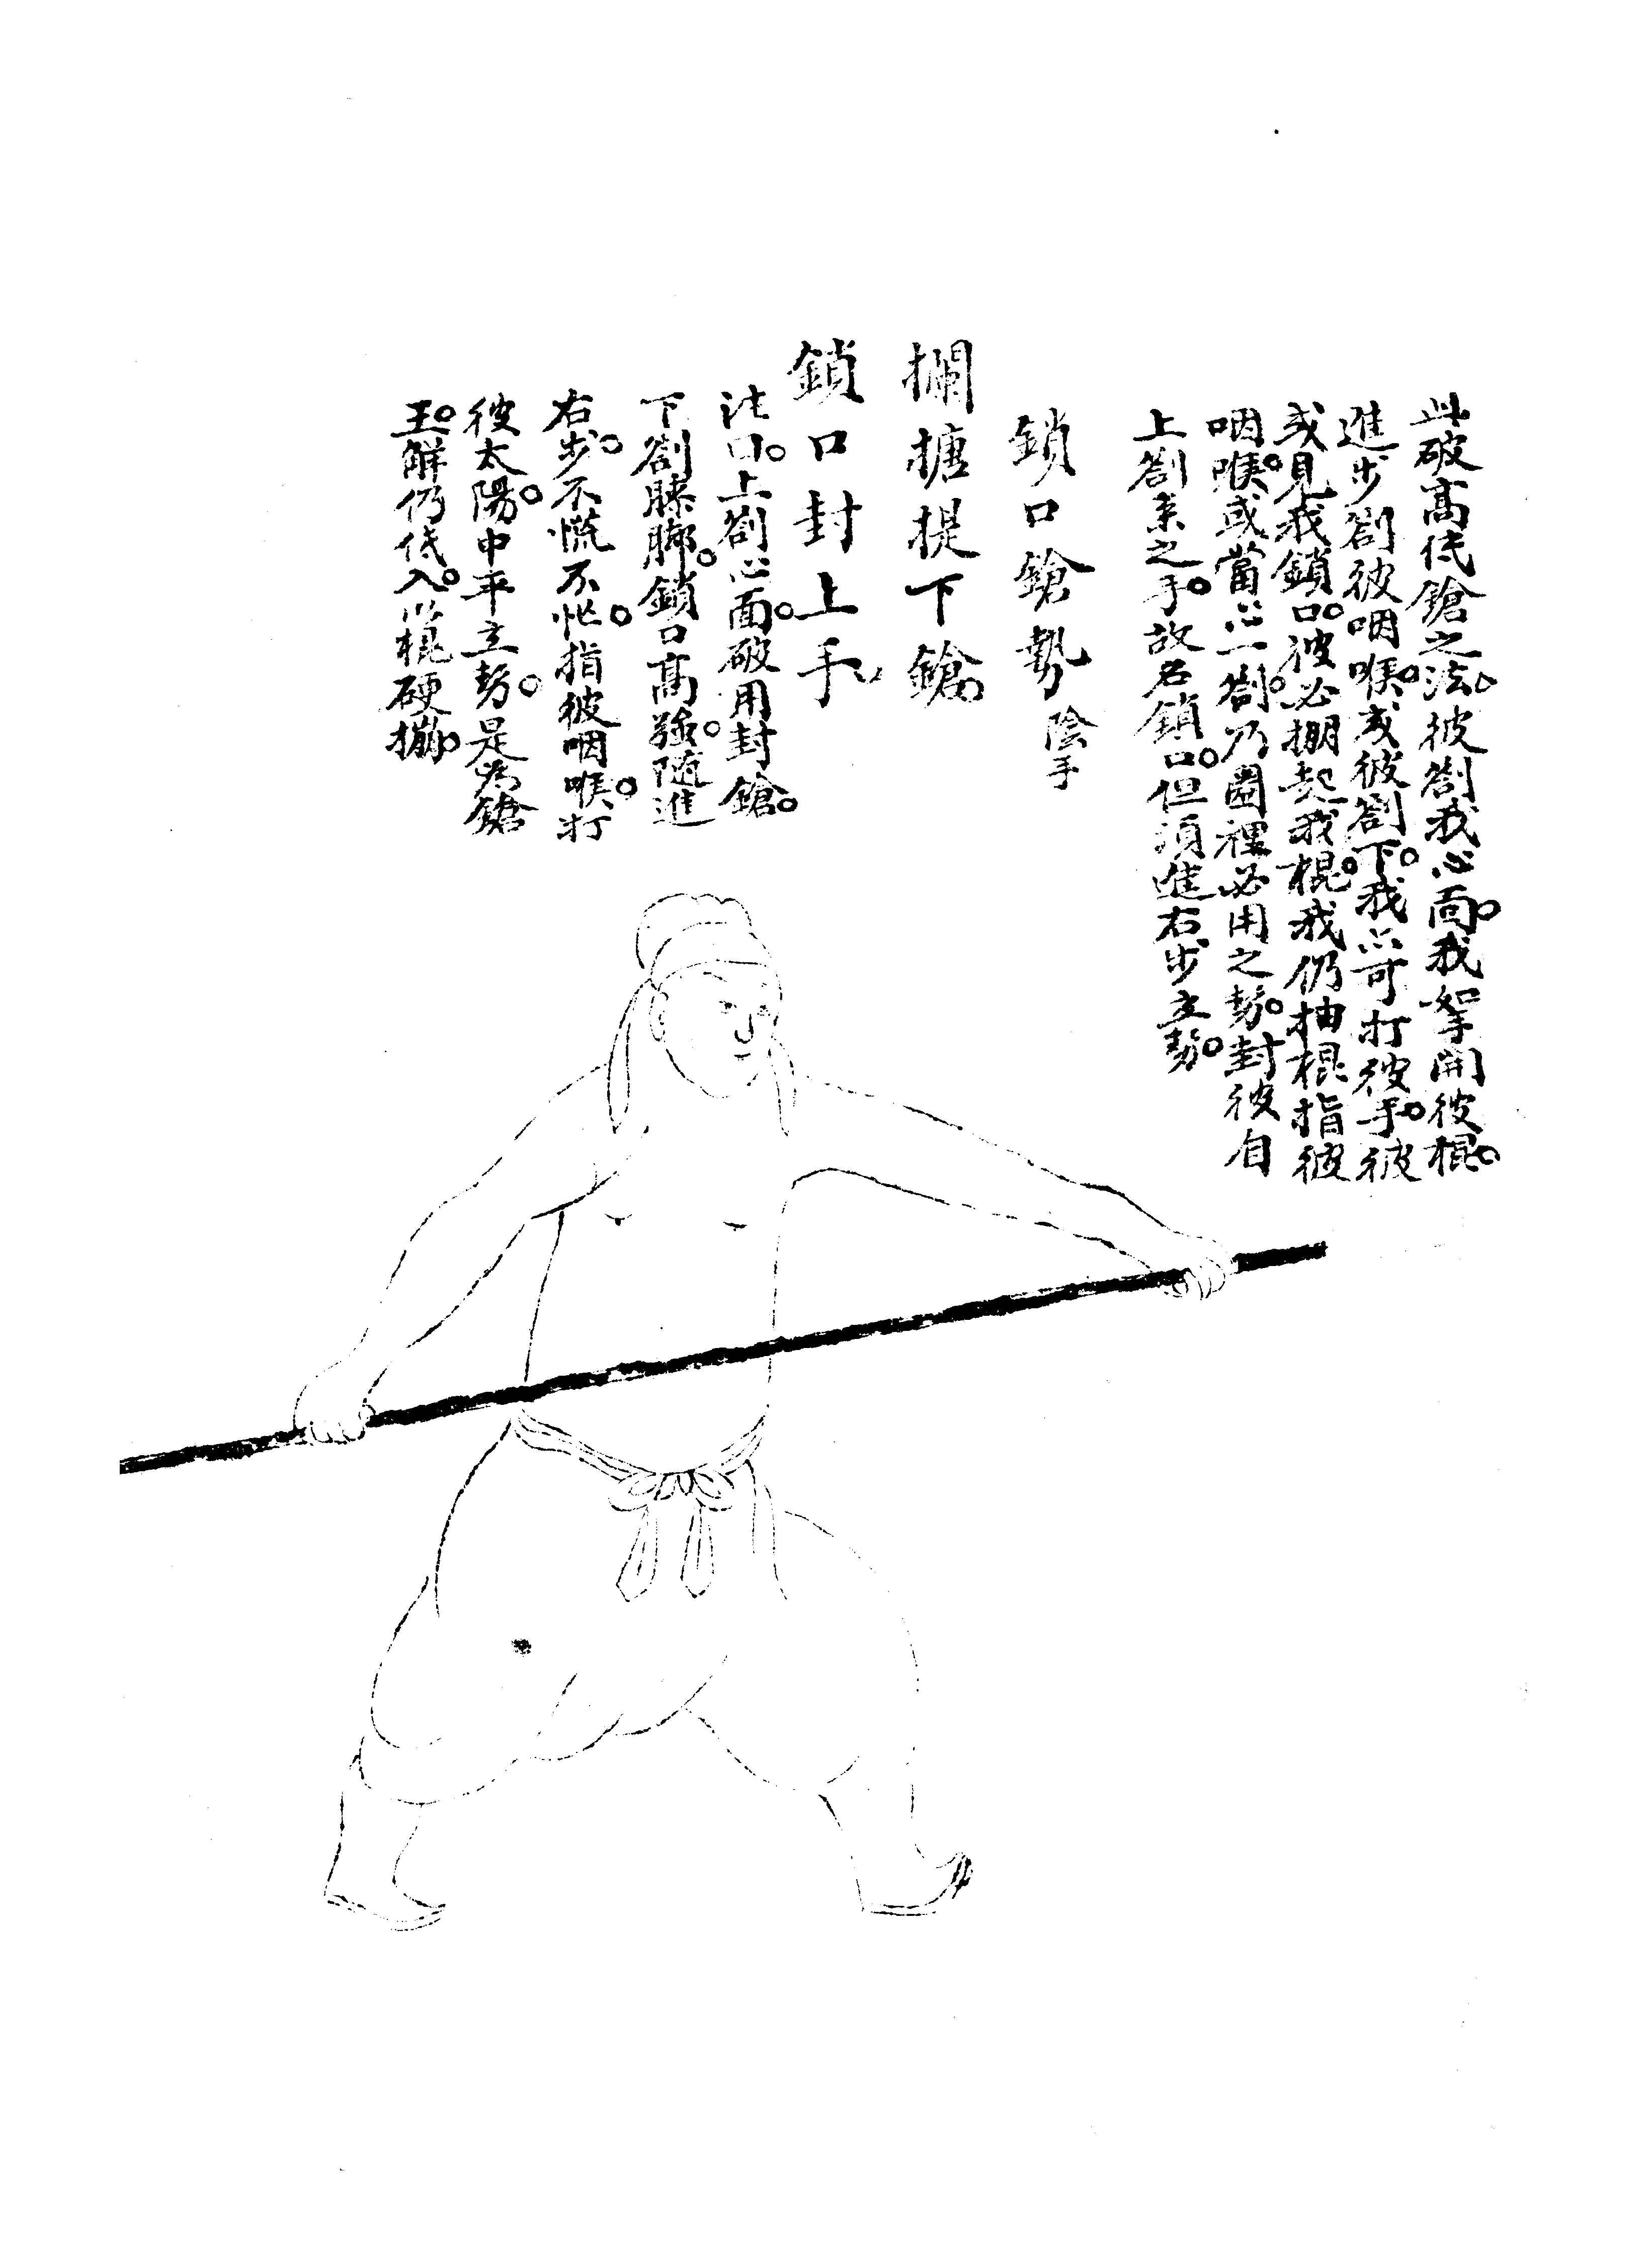 此破高低鎗之法。彼劄我心面。我拏開彼棍。
進步劄彼咽喉。或彼劄下。我以可打彼手。彼
或見我鎖口。彼必掤起我棍。我仍抽棍指彼
咽喉。或當心一劄。乃圈裡必用之勢。封彼自
上劄來之手。故名鎖口。但須進右步立勢。
鎖口鎗勢 陰手
攔搪提下鎗
鎖口封上手
法曰。上劄心面。破用封鎗。
下劄膝脚。鎖口高強。隨進
右步。不慌不忙。指彼咽喉。打
彼太陽。中平立勢。是為鎗
王。解仍低入。以棍硬掤。